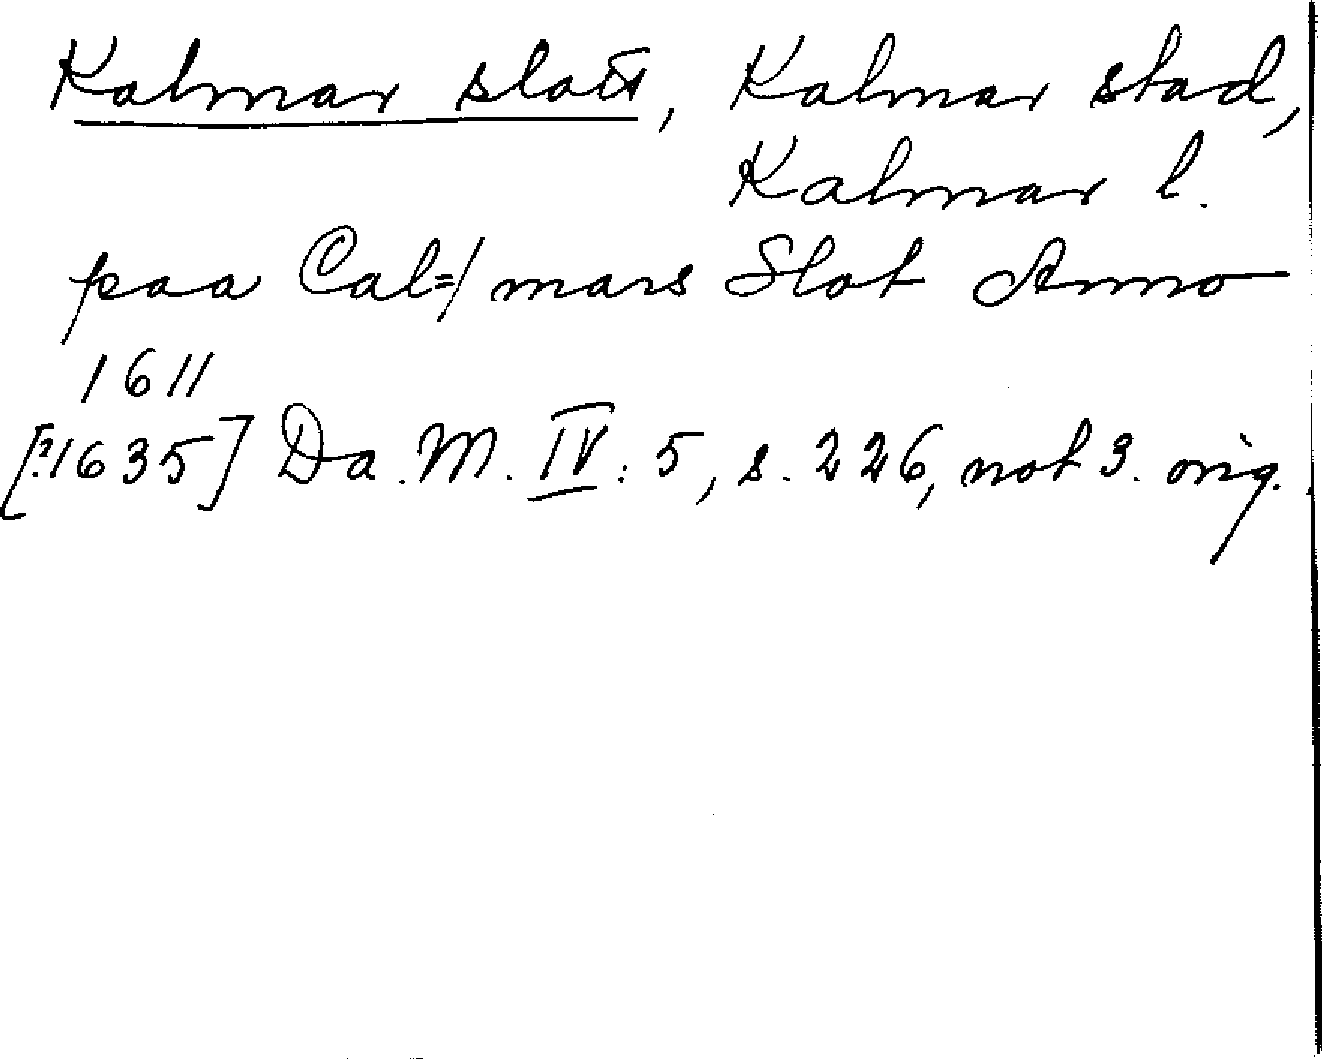 Kalmar slott, Kalmar stad,
Kalmar l.
paa Cal=/mars Slot Anno
1611
[?1635] Da. M. IV: 5, s. 226, not 3. orig.